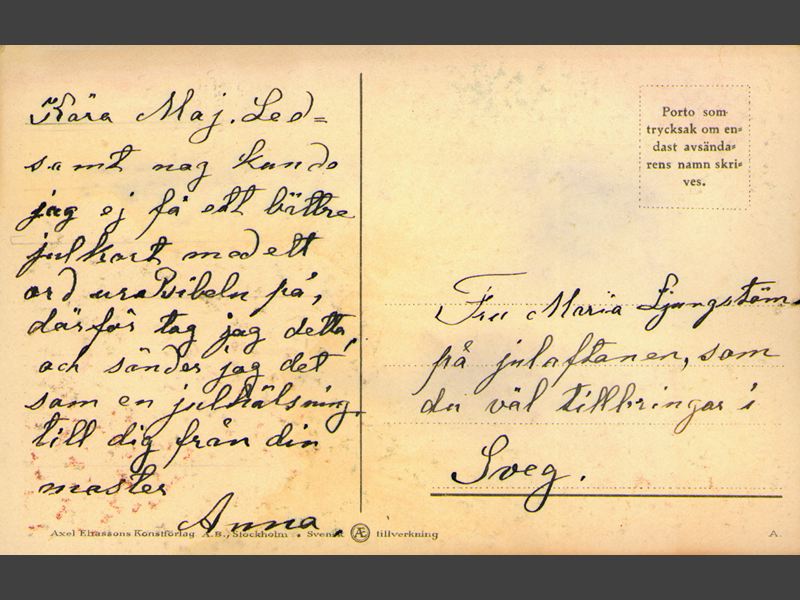 Kära Maj. Led=
samt nog kunde
jag ej få ett bättre
julkort med ett
ord ur Bibeln på,
därför tog jag detta,
och sänder jag det
som en julhälsning
till dig från din
moster
Anna.
Porto som
trycksak om en=
dast avsända=
rens namn skri=
ves.
Fru Maria Ljungstöm
på julaftonen, som
du väl tillbringar i
Sveg.
Axel Eliassons Konstförlag A.B., Stockholm . Svensk Æ tillverkning
A.